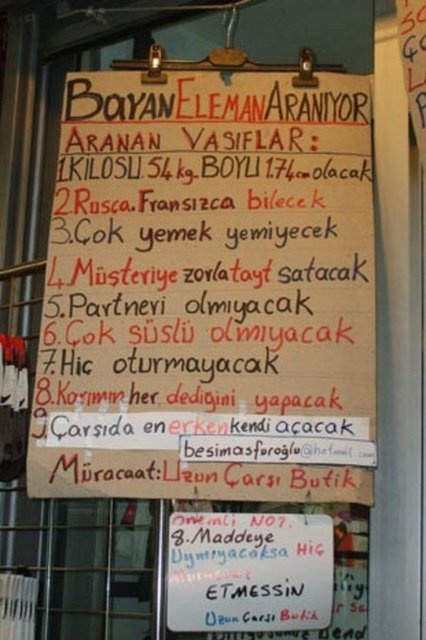 Bayan ELEMAN ARANIYOR
ARANAN VASIFLAR:
1.KILOSU.54kg.BOYU 1.74cm olacak
2.Rusça.Fransızca bilecek
3.Çok yemek yemiyecek
4.Müşteriye zorla tayt satacak
5.Partneri olmıyacak
6.Çok süslü olmıyacak
7.Hiç oturmayacak
8.Karımın her dediğini yapacak
9 Çarşıda en erken kendi açacak
besimasfuroğlu@hotmail.com
Müracaat: Uzun Çarşı Butik
önemli NOT.
8.Maddeye
Uymıyacaksa Hiç
ETMESSİN
Uzun Çarşı Butik